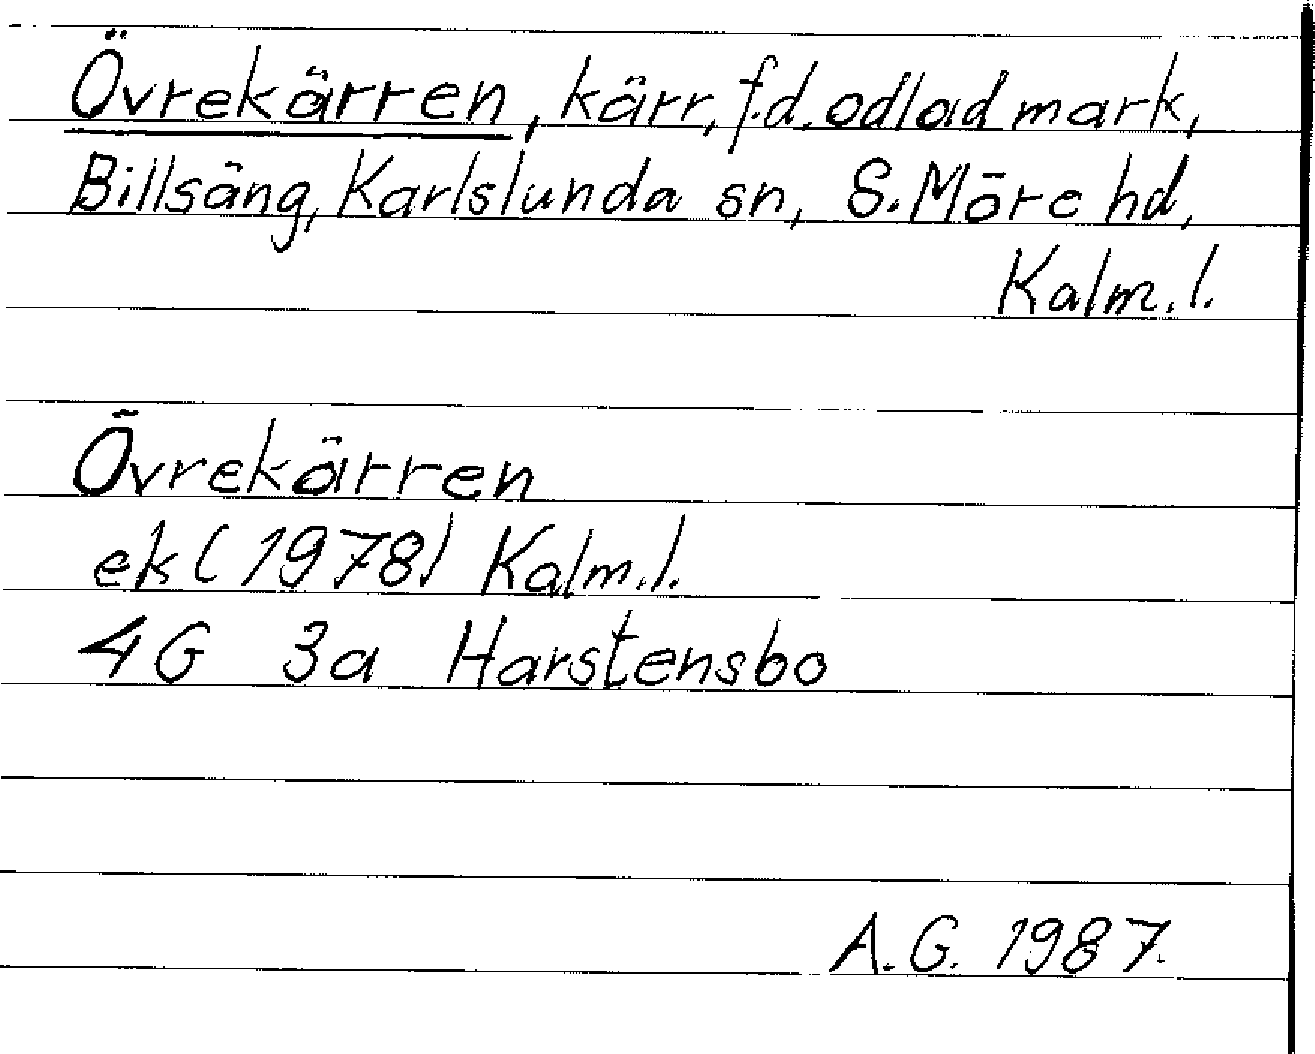 Övrekärren, kärr, f.d. odlad mark,
Billsäng, Karlslunda sn, S. Möre hd,
Kalm. l.
Övrekärren
ek (1978) Kalm. l.
4G 3a Harstensbo
A.G. 1987.